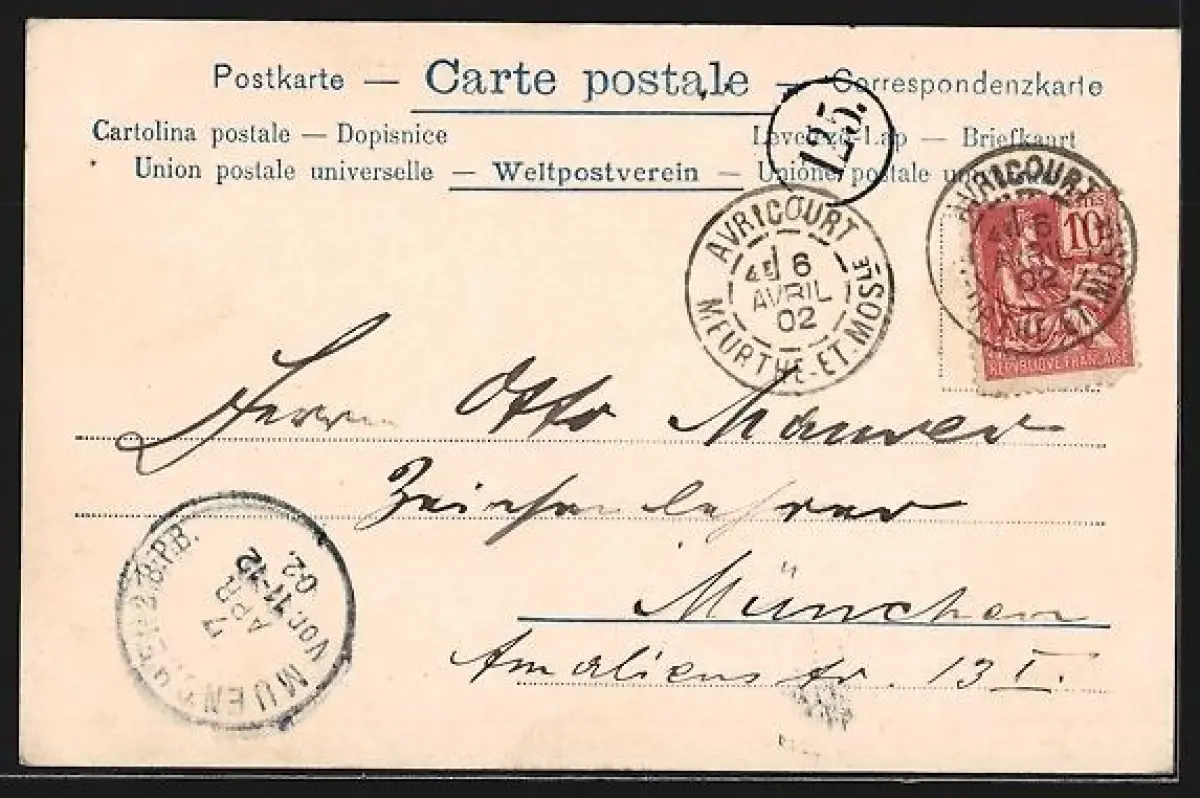 Postkarte — Carte postale — Correspondenzkarte
Cartolina postale — Dopisnice
Levelező-Lap — Briefkaart
Union postale universelle — Weltpostverein — Unione postale
125.
AVRICOURT
4E 6
AVRIL
02
MEURTHE-ET-MOSELLE
AVRICOURT
6
AVRIL
02
10
REPUBLIQUE FRANÇAISE
Herrn Otto Maurer
Zeichenlehrer
München
Amalienstr. 13 I.
MUENCHEN 2.B.P.B.
7
APR
Vor. 11-12
02.